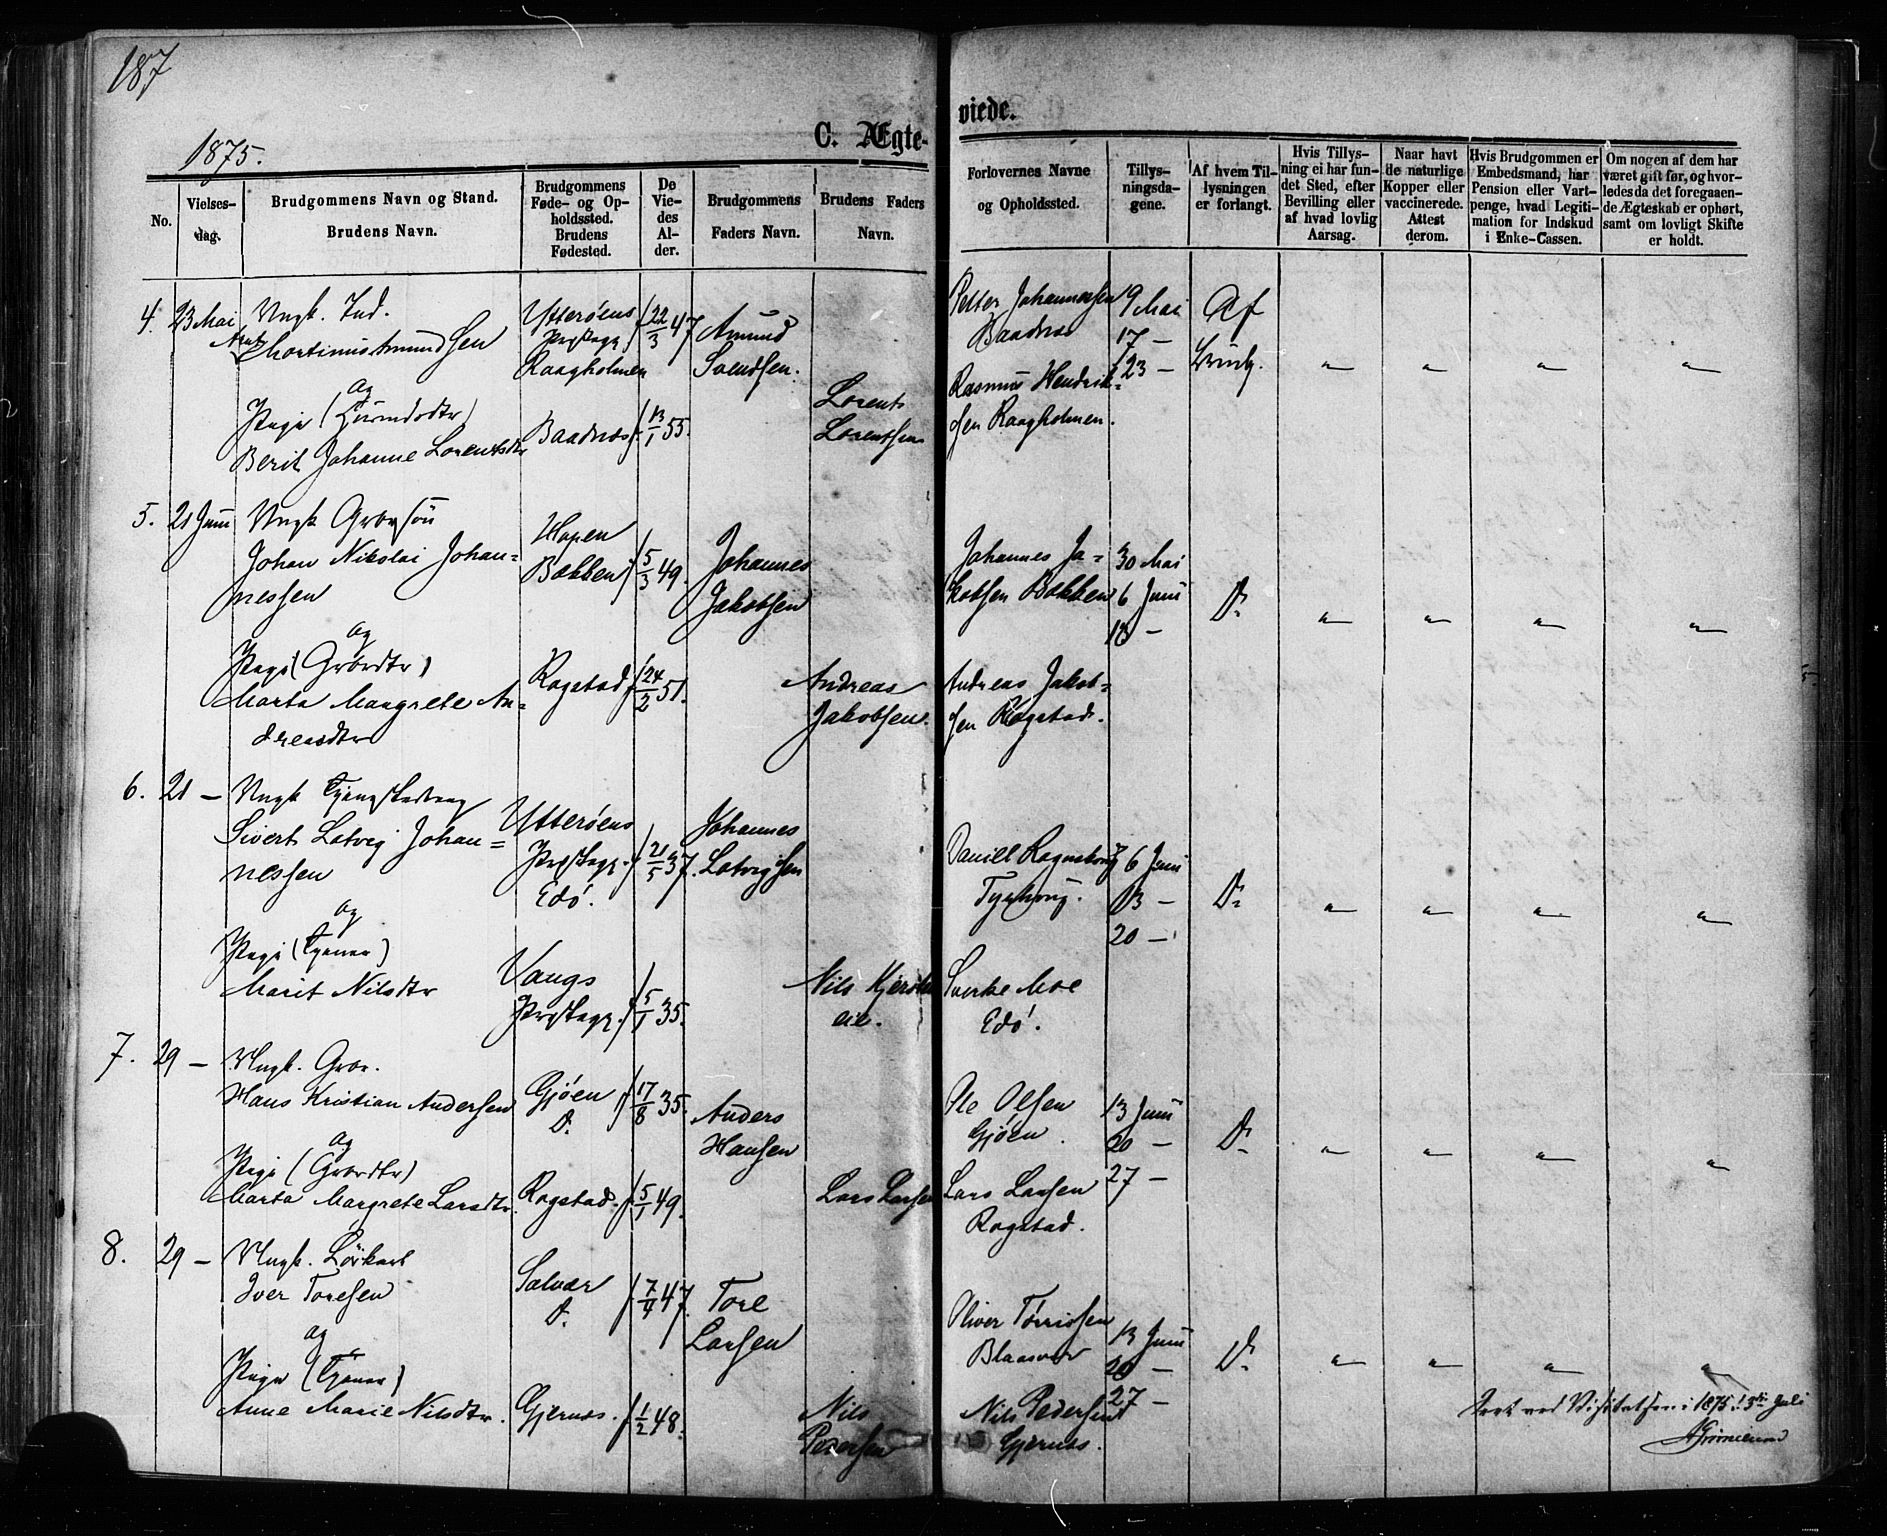 187
1875.
C. Ægte-
viede.
No.
Vielses-
dag.
Brudgommens Navn og Stand.
Brudens Navn.
Brudgommens
Føde- og Op-
holdssted.
Brudens
Fødested.
De
Vie-
des
Al-
der.
Brudgommens
Faders Navn.
Brudens Faders
Navn.
Forlovernes Navne
og Opholdssted.
Tillys-
ningsda-
gene.
Af hvem Til-
lysningen
er forlangt.
Hvis Tillys-
ning ei har fun-
det Sted, efter
Bevilling eller
af hvad lovlig
Aarsag.
Naar havt
de naturlige
Kopper eller
vaccinerede.
Attest
derom.
Hvis Brudgommen er
Embedsmand, har
Pension eller Vart-
penge, hvad Legiti-
mation for Indskud
i Enke-Cassen.
Om nogen af dem har
været gift før, og hvor-
ledes da det foregaaen-
de Ægteskab er ophørt,
samt om lovligt Skifte
er holdt.
4. 23 Mai
Ungk. Ind.
Martinus Amundsen
og
Pige
Berit Johanne Lorentsdtr
Ytterøens
Prstegj.
Raagholmen
Baadnes
f. 22/3 47
f. 13/1 55.
Amund
Svendsen.
Lorents
Lorentsen
Petter Johannessen
Baadnes
Rasmus Hendrik=
sen Raagholmen.
9 Mai
17 —
23 —
Af
Brudg.
5. 21 Juni
Ungk Gbrsøn
Johan Nikolai Johan=
nessen
og
Pige (Gbrdtr)
Marta Margrete An=
dreasdtr
Hopen
Bakken
Rogstad
f. 5/3 49.
f. 24/2 51.
Johannes
Jakobsen
Andreas
Jakobsen.
Johannes Ja=
kobsen Bakken
Andreas Jakob=
sen Rogstad.
30 Mai
6 Juni
13 —
Do
6. 21 —
Ungk
Sivert Lotvig Johan=
nessen
og
Pige (Tjener)
Marit Nilsdtr
Ytterøens
Prstegj.
Edø.
Vangs
Prstegj.
f. 21/5 37.
f. 5/1 35.
Johannes
Lotvigsen
Nils
eie.
Daniel
Sverke Moe
Edø.
6 Juni
13 —
20 —
Do
7. 29 —
Ungk. Gbr.
Hans Kristian Andersen
og
Pige (Gbrdtr)
Marta Margrete Larsdtr.
Gjøen
Do
Rogstad.
f. 17/8 35.
f. 5/1 49.
Anders
Hansen
Lars Larsen
Ole Olsen
Gjøen
Lars Larsen
Rogstad.
13 Juni
20 —
27 —
Do
8. 29 —
Ungk.
Iver Toresen
og
Pige (Tjener)
Anne Marie Nilsdtr.
Salvær
Do
Gjernes.
f. 7/4 47.
f. 1/2 48.
Tore
Larsen
Nils
Pedersen
Oliver Tørrissen
Blaasvær
Nils Pedersen
Gjernes.
13 Juni
20 —
27 —
Do
Seet ved Visitatsen i 1875 Juli